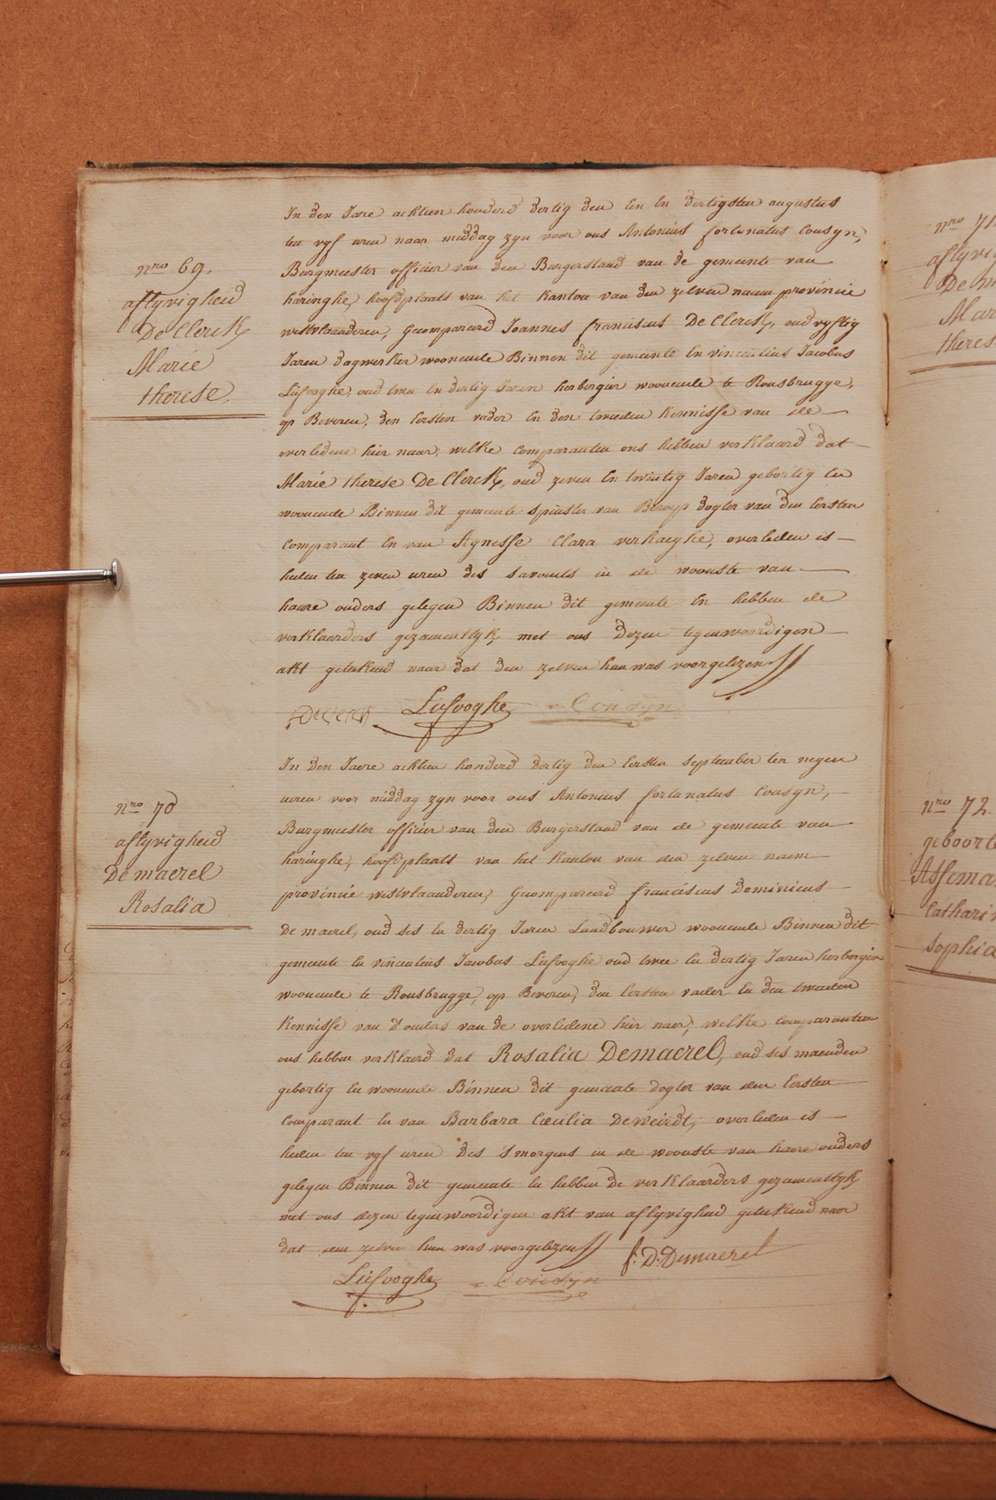 nro 69.
aflyvigheid
De Clerck
Marie
therese.
In den Jare achtien honderd dertig den een en dertigsten augustus
ten vyf uren naer middag zyn voor ons Antonius fortunatus Cousyn,
Burgmeester officier van den Burgerstand van de gemeente van
haringhe, hoofdplaats van het kanton van den zelven naem provincie
westvlaanderen, Gecompareerd Joannes franciscus De Clerck, oud vyftig
Jaren dagwerker wooenende Binnen dit gemeente En vincentius Jacobus
Lefooghe, oud twee en dertig Jaren herbergier wooenende te Rousbrugge,
op Beveren, den Eersten vader En den tweeden Kennisse van de
overledene hier naer, welke comparanten ons hebben verklaerd dat
Marie therese De Clerck, oud zeven En twintig Jaren gebortig En
wooenende Binnen dit gemeente spinster van Beroep dogter van den Eersten
Comparant En van Agnesse Clara verhaeghe, overleden is
heden ten zeven uren des savonds in de wooнste van
haere ouders gelegen Binnen dit gemeente En hebben de
verklaarders gezamentlyk met ons dezen tegenwoordigen
akt geteekend naer dat den zelven hun was voorgelezen
DeClerck Lefooghe Cousyn
nro 70
aflyvigheid
De maerel
Rosalia
In den Jaere achtien honderd dertig den Eersten september ten negen
uren voor middag zyn voor ons Antonius fortunatus Cousyn,
Burgmeester officier van den Burgerstand van de gemeente van
haringhe, hoofdplaats van het Kanton van den zelven naem
provincie westvlaanderen, Gecompareerd franciscus Dominicus
De maerel, oud ses En dertig Jaren Landbouwer wooenende Binnen dit
gemeente En vincentius Jacobus Lefooghe oud twee En dertig Jaren herbergier
wooenende te Rousbrugge, op Beveren, den Eersten vader En den tweeden
Kennisse van d'ouders van de overledene hier naer, welke comparanten
ons hebben verklaerd dat Rosalia Demaerel, oud ses maenden
gebortig En wooenende Binnen dit gemeente dogter van den Eersten
Comparant En van Barbara Cæcilia Deweirdt, overleden is
heden ten vyf uren des 's morgens in de woonste van haere ouders
gelegen Binnen dit gemeente En hebben de verklaarders gezamentlyk
met ons dezen tegenwoordigen akt van aflyvigheid geteekend naer
dat den zelven hun was voorgelezen f. D. Demaerel
Lefooghe Cousyn
nro 71
aflyvig
De m
Mar
theres
nro 72.
geboorte
Assema
Catharin
sophia